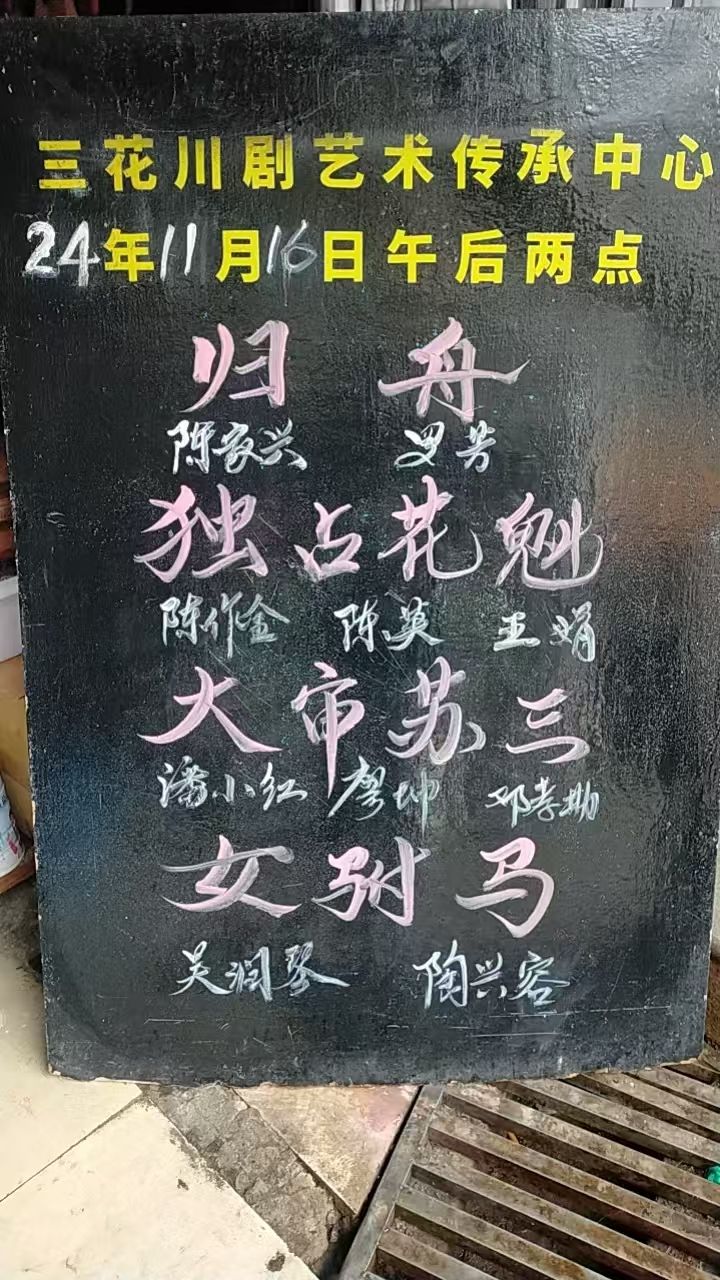 三花川剧艺术传承中心
24年11月16日午后两点
归舟
陈家兴 罗芳
独占花魁
陈作金 陈英 王娟
大审苏三
潘小红 廖坤 邓孝勘
女驸马
吴润琴 陶兴容